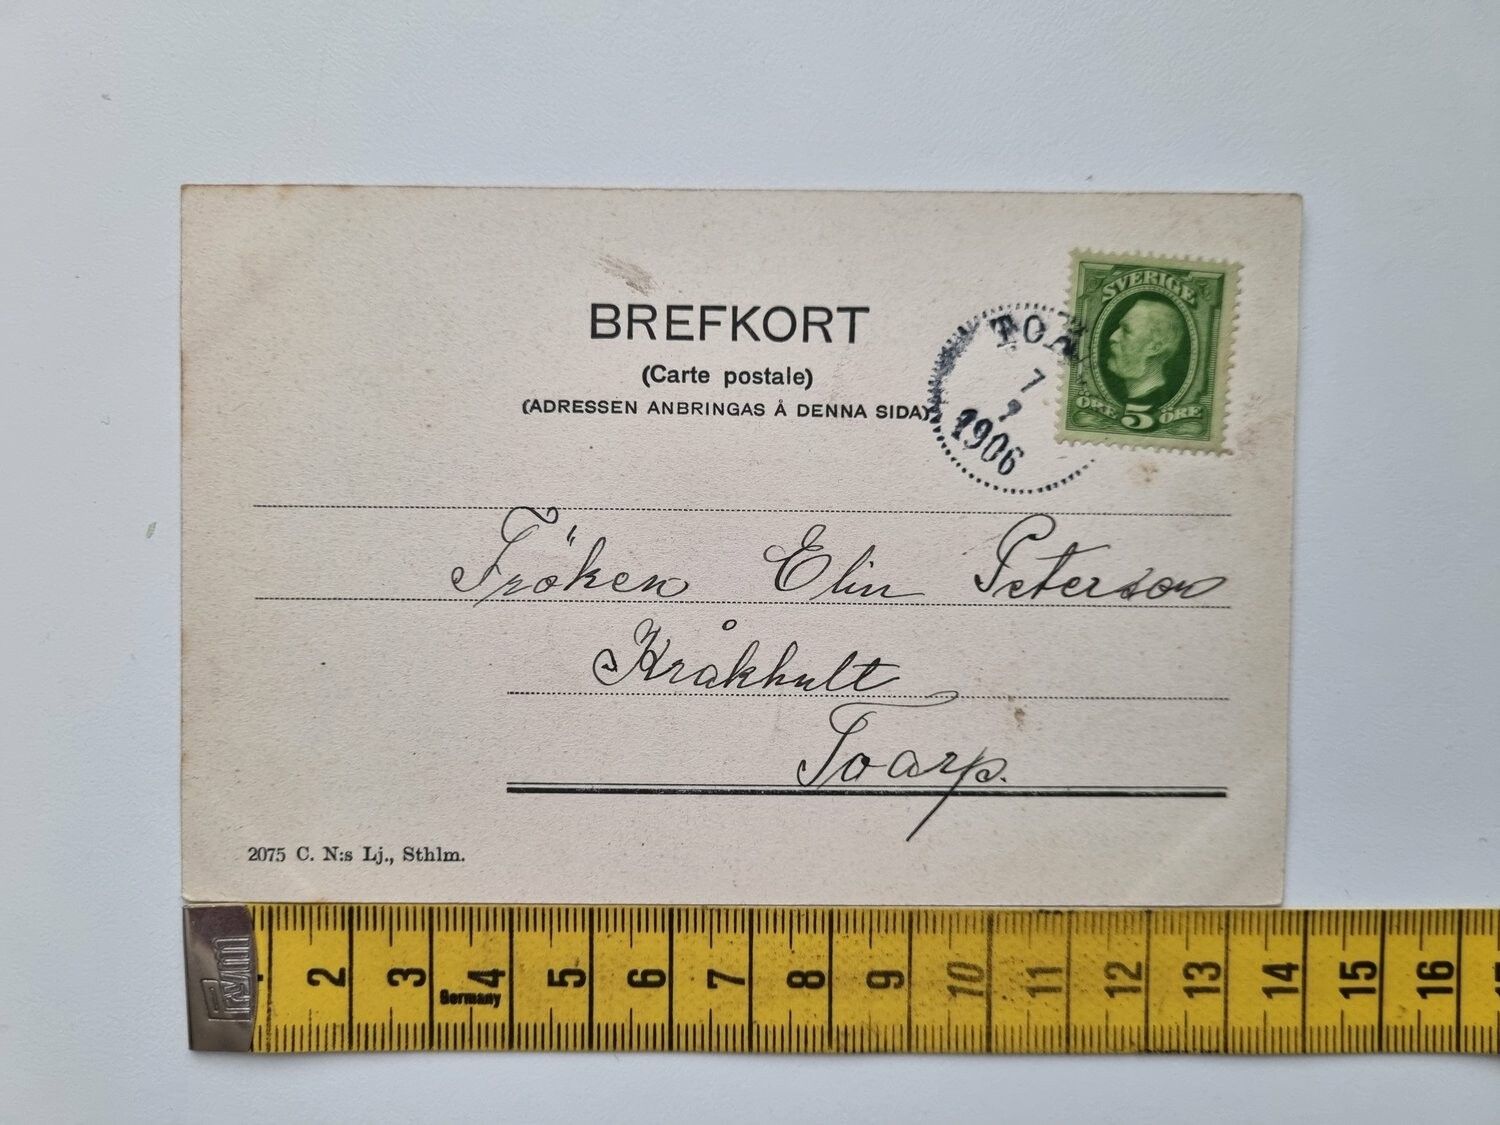 BREFKORT
(Carte postale)
(ADRESSEN ANBRINGAS Å DENNA SIDA)
SVERIGE
ÖRE 5 ÖRE
TOA
7
7
1906
Fröken Elin Peterson
Kråkhult
Toarp.
2075 C. N:s Lj., Sthlm.
Prym
2 3 4 5 6 7 8 9 10 11 12 13 14 15 16
Germany